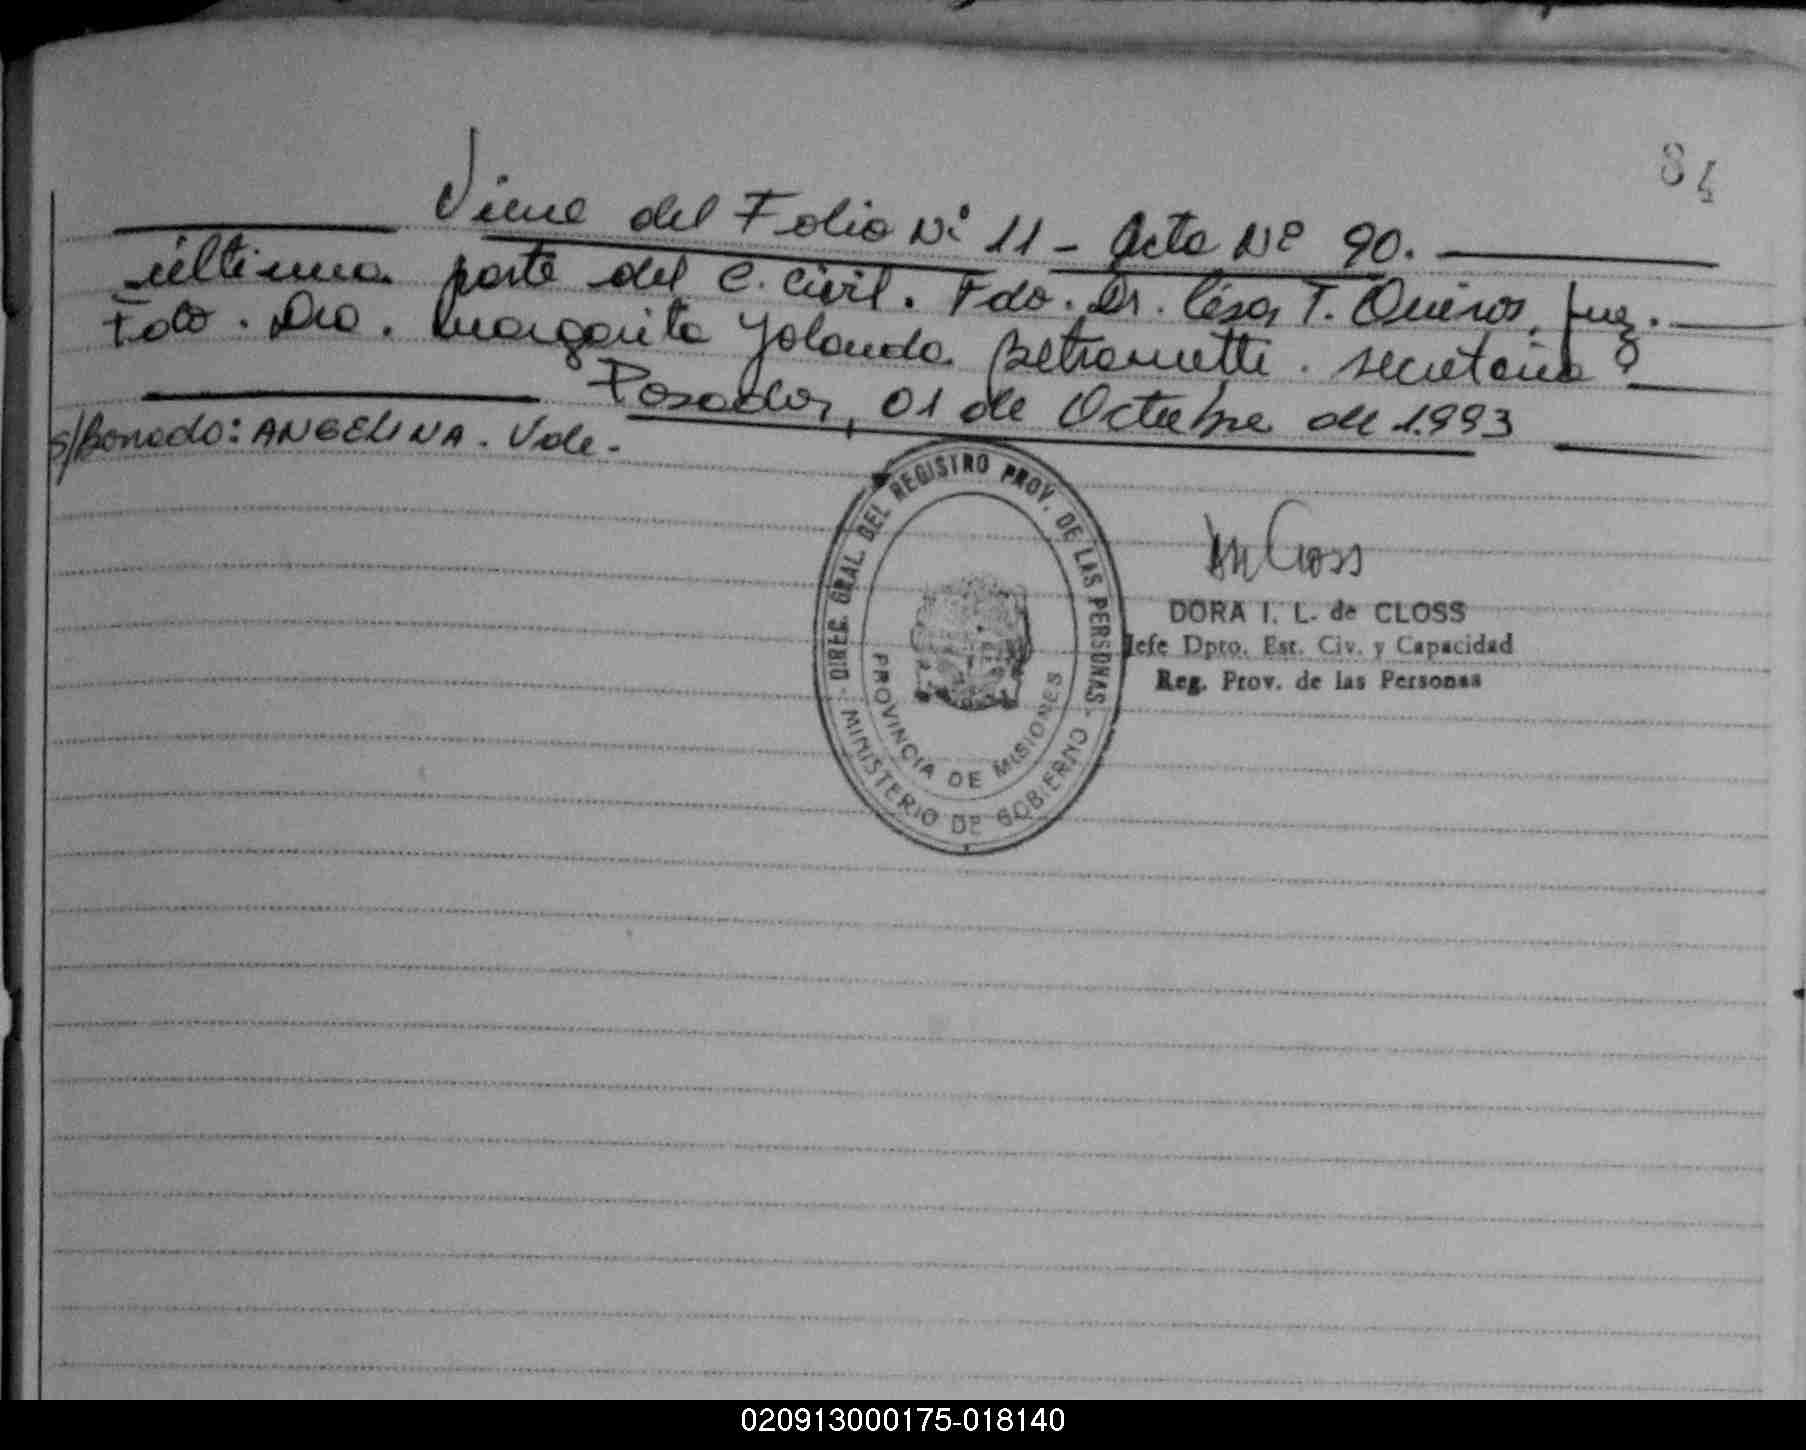 84
Viene del Folio Nº 11 - Acta Nº 90.
última parte del C. Civil. Fdo. Dr. César T. Queiros, Juez.
Fdo. Dra. Margarita Yolanda secretaria
Posadas, 01 de Octubre de 1.993
s/Borrado: ANGELINA. Vale.
DIREC. GRAL. DEL REGISTRO PROV. DE LAS PERSONAS
MINISTERIO DE GOBIERNO
PROVINCIA DE MISIONES
DORA I. L. de CLOSS
Jefe Dpto. Est. Civ. y Capacidad
Reg. Prov. de las Personas
020913000175-018140